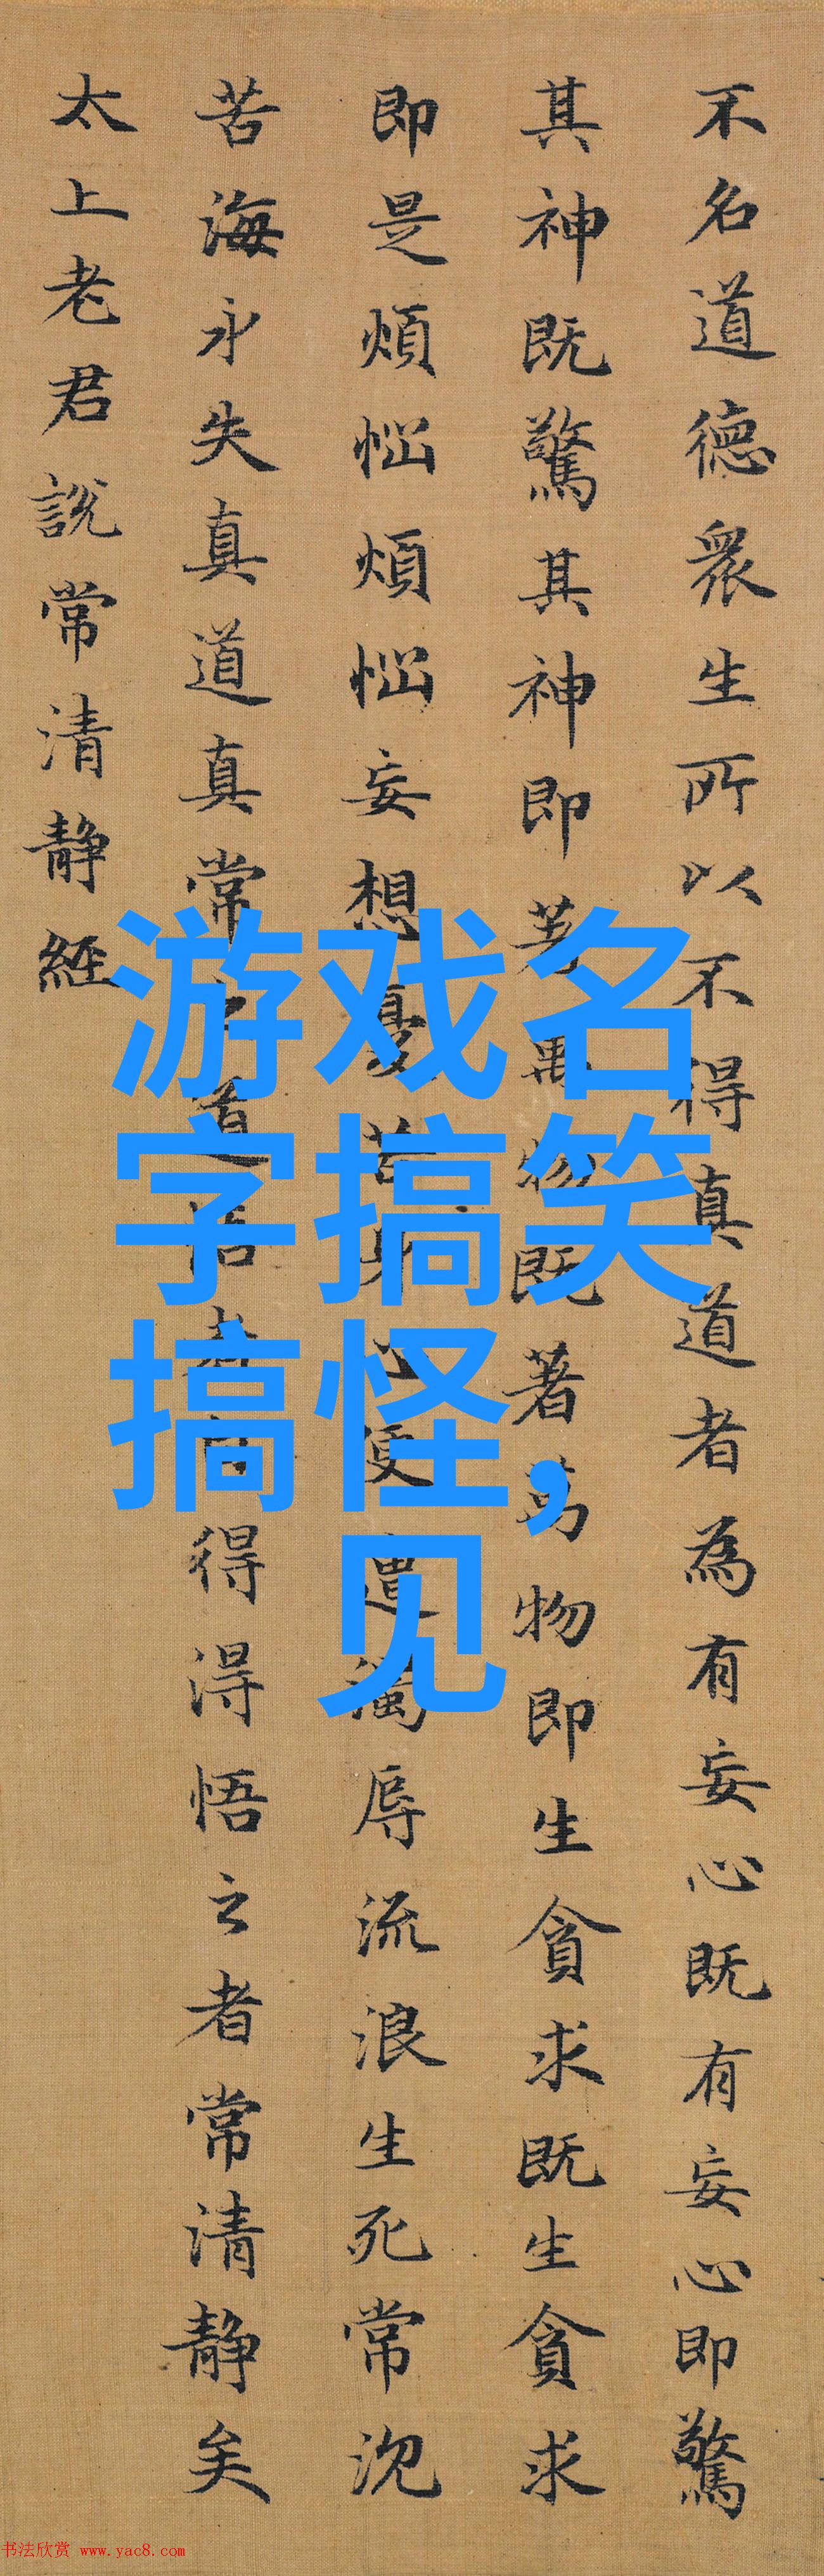 不名道德眾生所以不得真道者為有妄心既有妄心即驚
其神既驚其神即著萬物既著萬物即生貪求既生貪求
即是煩惱煩惱妄想憂苦身心便遭濁辱流浪生死常沉
苦海永失真道真常之道悟者自得得悟之者常清靜矣
太上老君說常清靜經
游戏名
字搞笑
搞怪,
见
书法欣赏 www.yac8.com